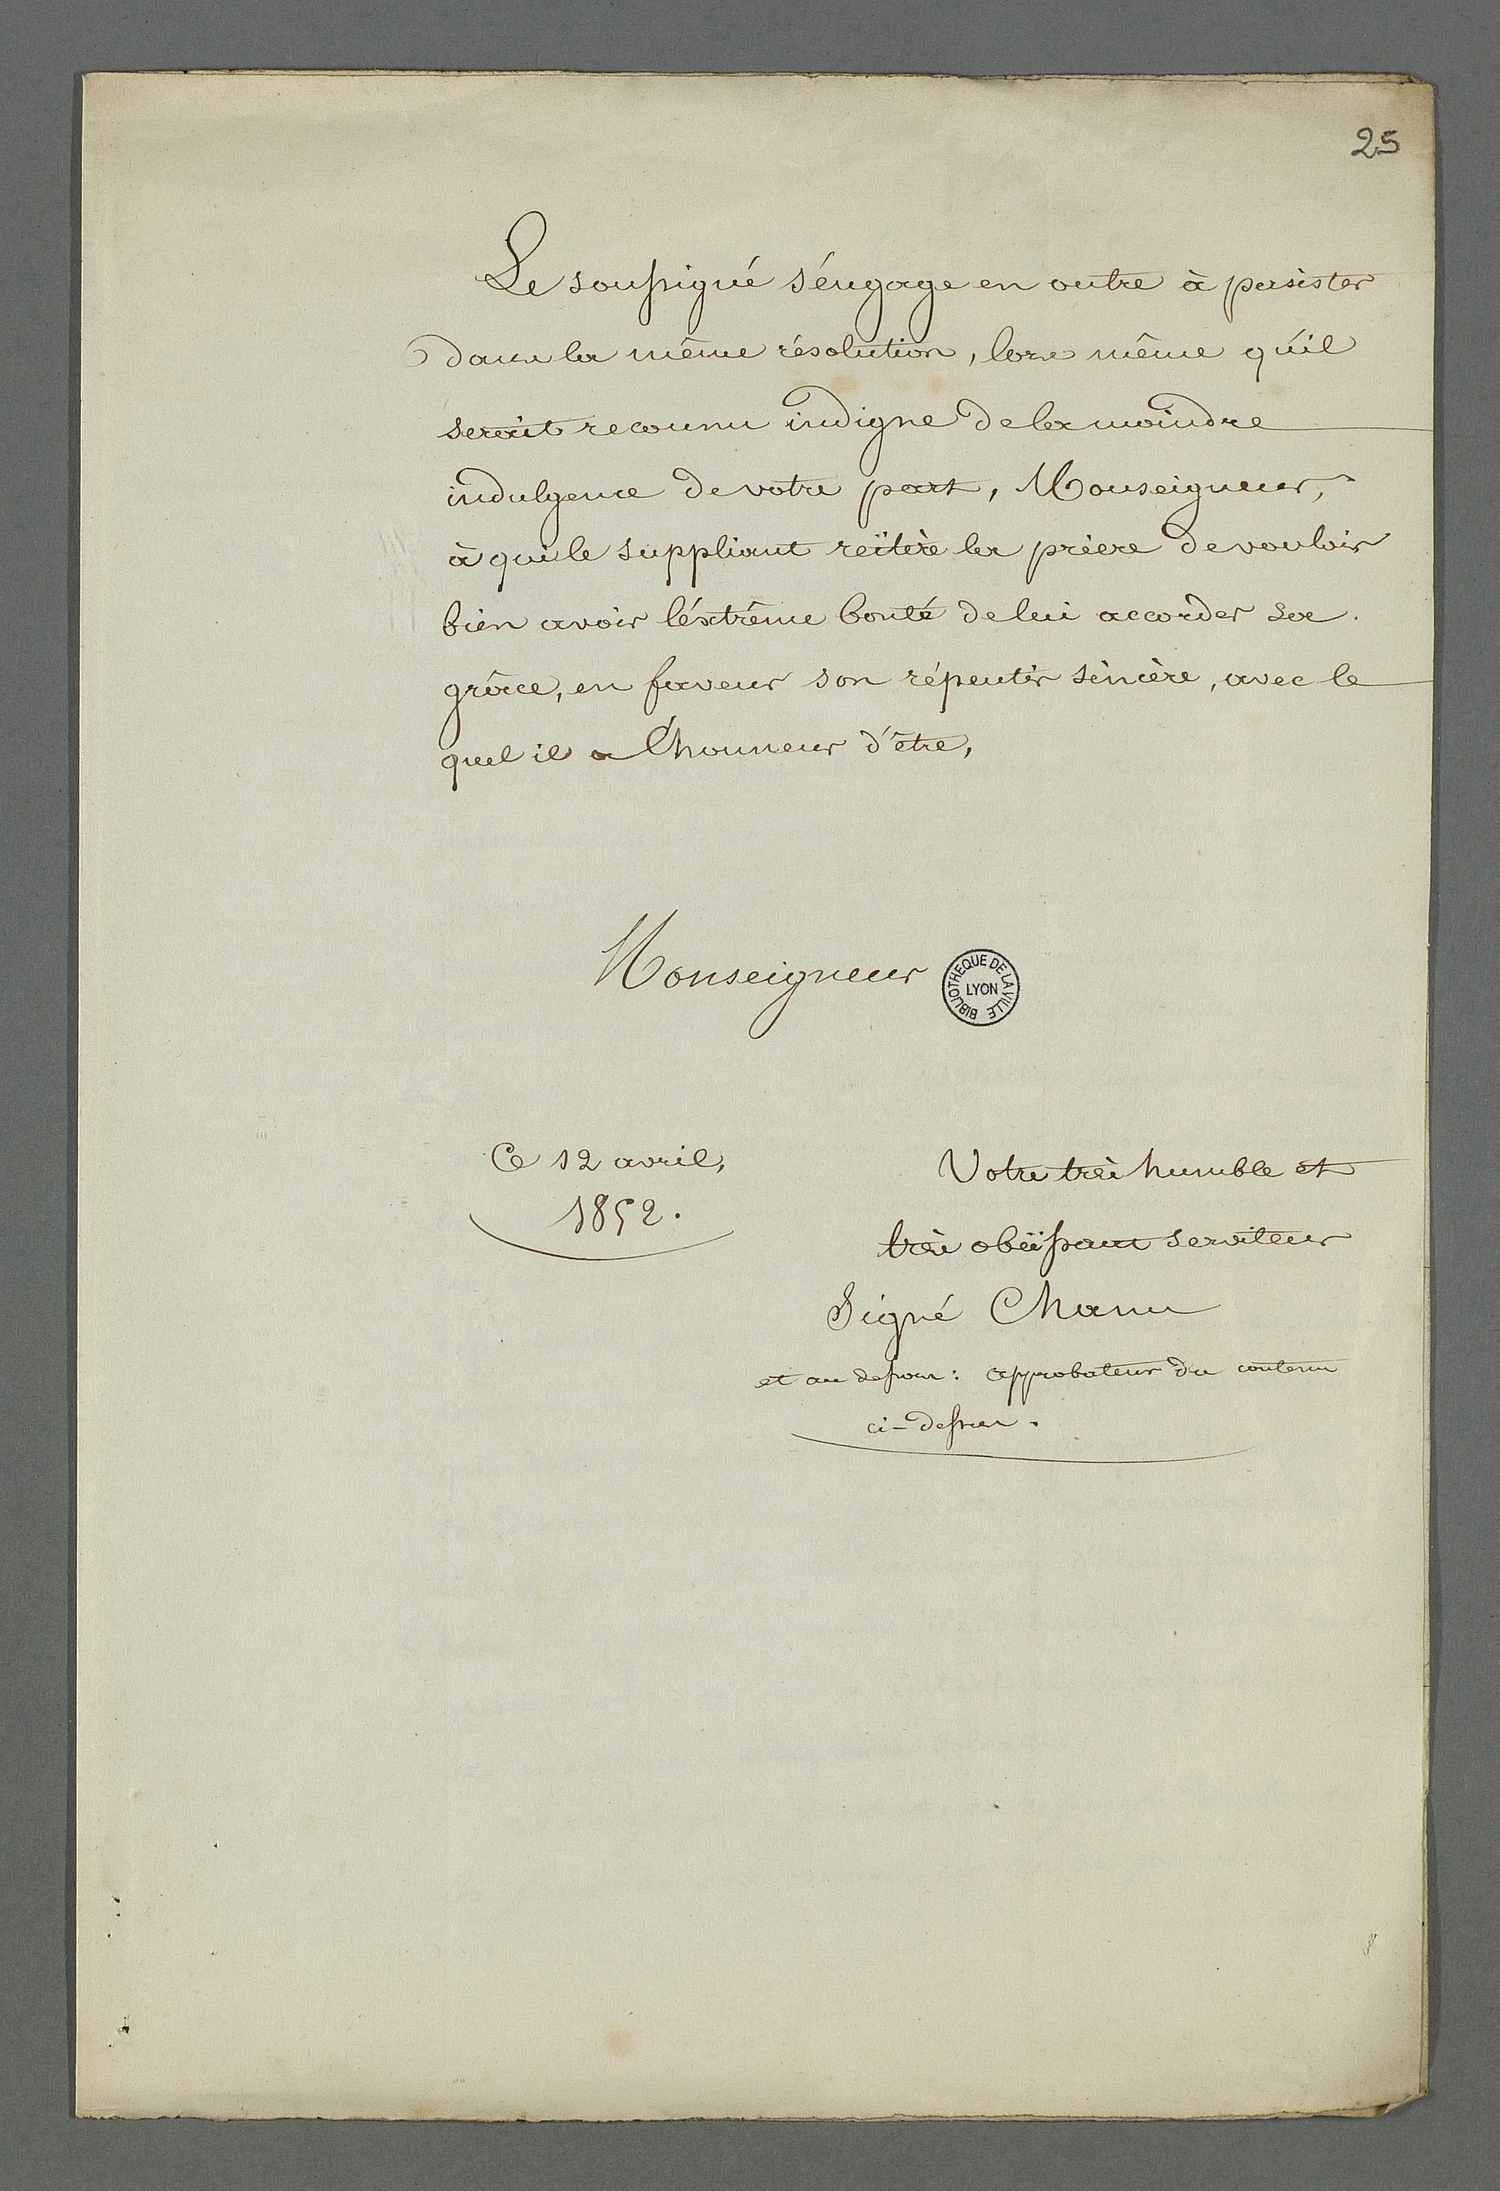 25
Le soussigné s'éngage en outre à persister
dans la même résolution, lors même qu'il
serait reconnu indigne de la moindre
indulgence de votre part, Monseigneur,
à qui le suppliant reïtère la prière de vouloir
bien avoir l'éxtrême bonté de lui accorder sa
grâce, en faveur son répentir sincère, avec le
quel il a l'honneur d'être,
Monseigneur
BIBLIOTHEQUE DE LA VILLE
LYON
Ce 12 avril,
1852.
Votre très humble et
très obéïssant serviteur
Signé Chanu
et au dessous: approbateur du contenu
ci-dessus.